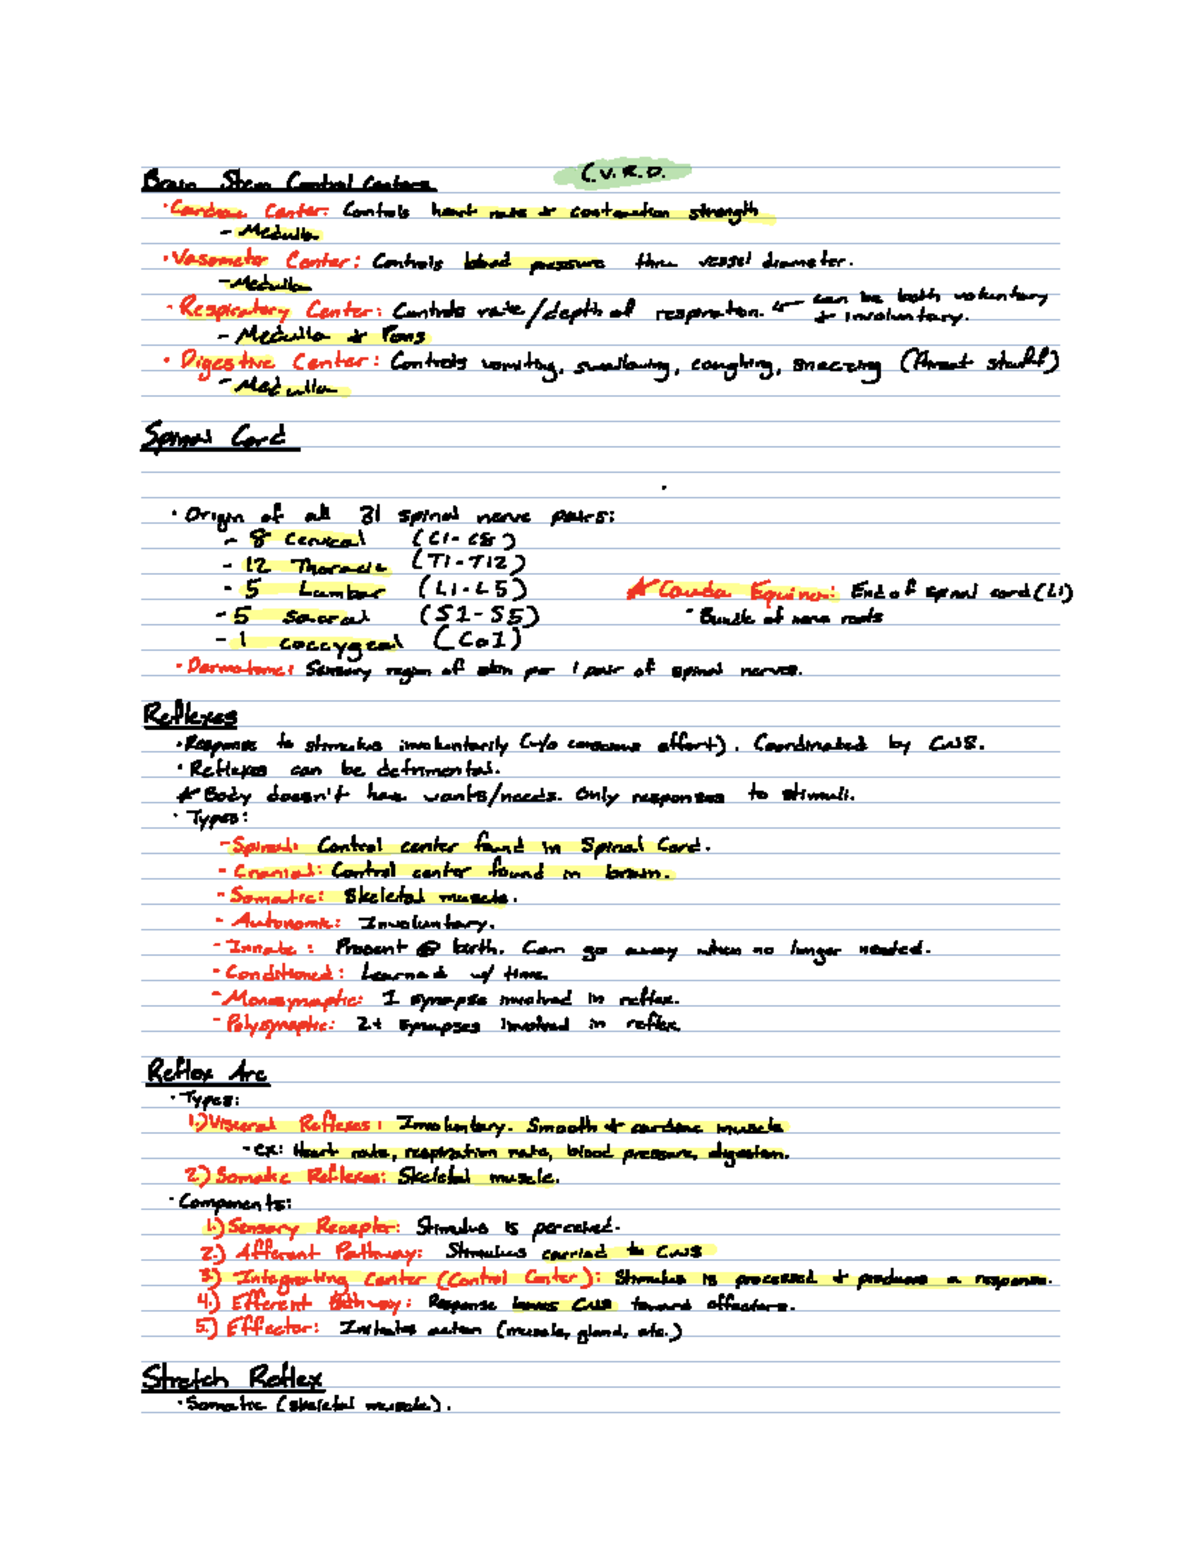 Brain Stem Control Centers C.V.R.D.
· Cardiac Center: Controls heart rate + contraction strength
- Medulla
· Vasomotor Center: Controls blood pressure thru vessel diameter.
- Medulla
· Respiratory Center: Controls rate/depth of respiration. ← can be both voluntary
+ involuntary.
- Medulla + Pons
· Digestive Center: Controls vomiting, swallowing, coughing, sneezing (Throat stuff)
- Medulla
Spinal Cord
· Origin of all 31 spinal nerve pairs:
- 8 Cervical (C1-C8)
- 12 Thoracic (T1-T12)
- 5 Lumbar (L1-L5) ★ Cauda Equina: End of spinal cord (L1)
- 5 Sacral (S1-S5) · Bundle of nerve roots
- 1 coccygeal (Co1)
· Dermatome: Sensory region of skin per 1 pair of spinal nerves.
Reflexes
· Response to stimulus involuntarily (w/o conscious effort). Coordinated by CNS.
· Reflexes can be detrimental.
★ Body doesn't have wants/needs. Only responses to stimuli.
· Types:
- Spinal: Control center found in Spinal Cord.
- Cranial: Control center found in brain.
- Somatic: Skeletal muscle.
- Autonomic: Involuntary.
- Innate: Present @ birth. Can go away when no longer needed.
- Conditioned: Learned w/ time.
- Monosynaptic: 1 synapse involved in reflex.
- Polysynaptic: 2+ synapses involved in reflex.
Reflex Arc
· Types:
1.) Visceral Reflexes: Involuntary. Smooth + cardiac muscle
- ex: Heart rate, respiration rate, blood pressure, digestion.
2.) Somatic Reflexes: Skeletal muscle.
· Components:
1.) Sensory Receptor: Stimulus is perceived.
2.) Afferent Pathway: Stimulus carried to CNS
3.) Integrating Center (Control Center): Stimulus is processed + produces a response.
4.) Efferent Pathway: Response leaves CNS toward effectors.
5.) Effector: Initiates action (muscle, gland, etc.)
Stretch Reflex
· Somatic (skeletal muscle).